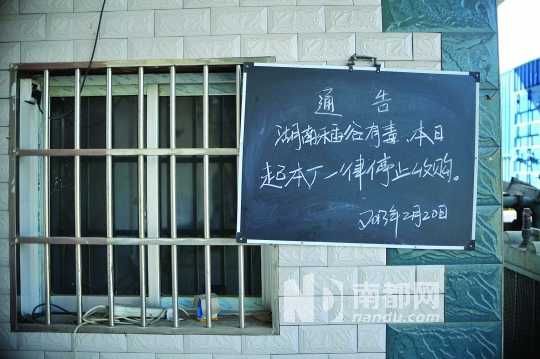 通告
湖南稻谷有毒、本日
起本厂一律停止收购。
2013年2月20日
ND 南都网
nandu.com